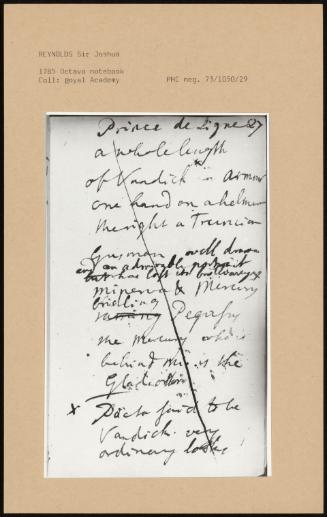 REYNOLDS Sir Joshua
1785 Octavo notebook
Coll: Royal Academy PMC neg. 73/1050/29
Prince de Ligne 87
a whole length
of Vandick in armour
one hand on a helmet
the right a Truncion
well drawn
an admirable portrait
but has lost its brilliancy x
Minerva & Mercury
bridling
Pegasus
the Mercury who is
behind is the
Gladiator
x Ditto said to be
Vandick very
ordinary looks